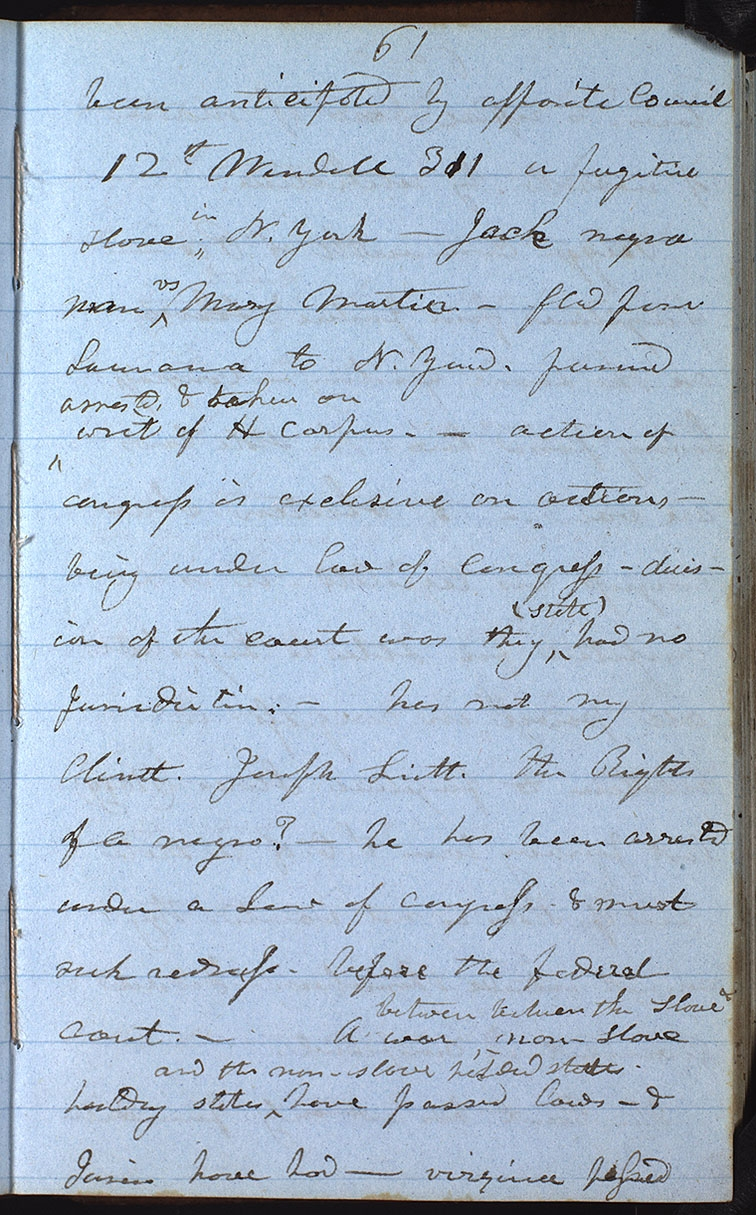 61
been anticipated by opposite Council
12th Wendell 311 a fugitive
slave in N. York — Jack negro
man vs Mary Martin — fled from
Louisiana to N. York. pursued
arrested, & taken on
writ of H Corpus. — action of
congress is exclusive on actions —
being under law of Congress — decis-
ion of the court was they (state) had no
Jurisdiction. — has not my
Client. Joseph Smith. the Rights
of a negro? — he has been arrested
under a Law of congress & must
seek redress. before the federal
court. — A war between the slave &
non-slave
and the non-slave states.
holding states, have passed laws — &
Juries have had — virginia passed